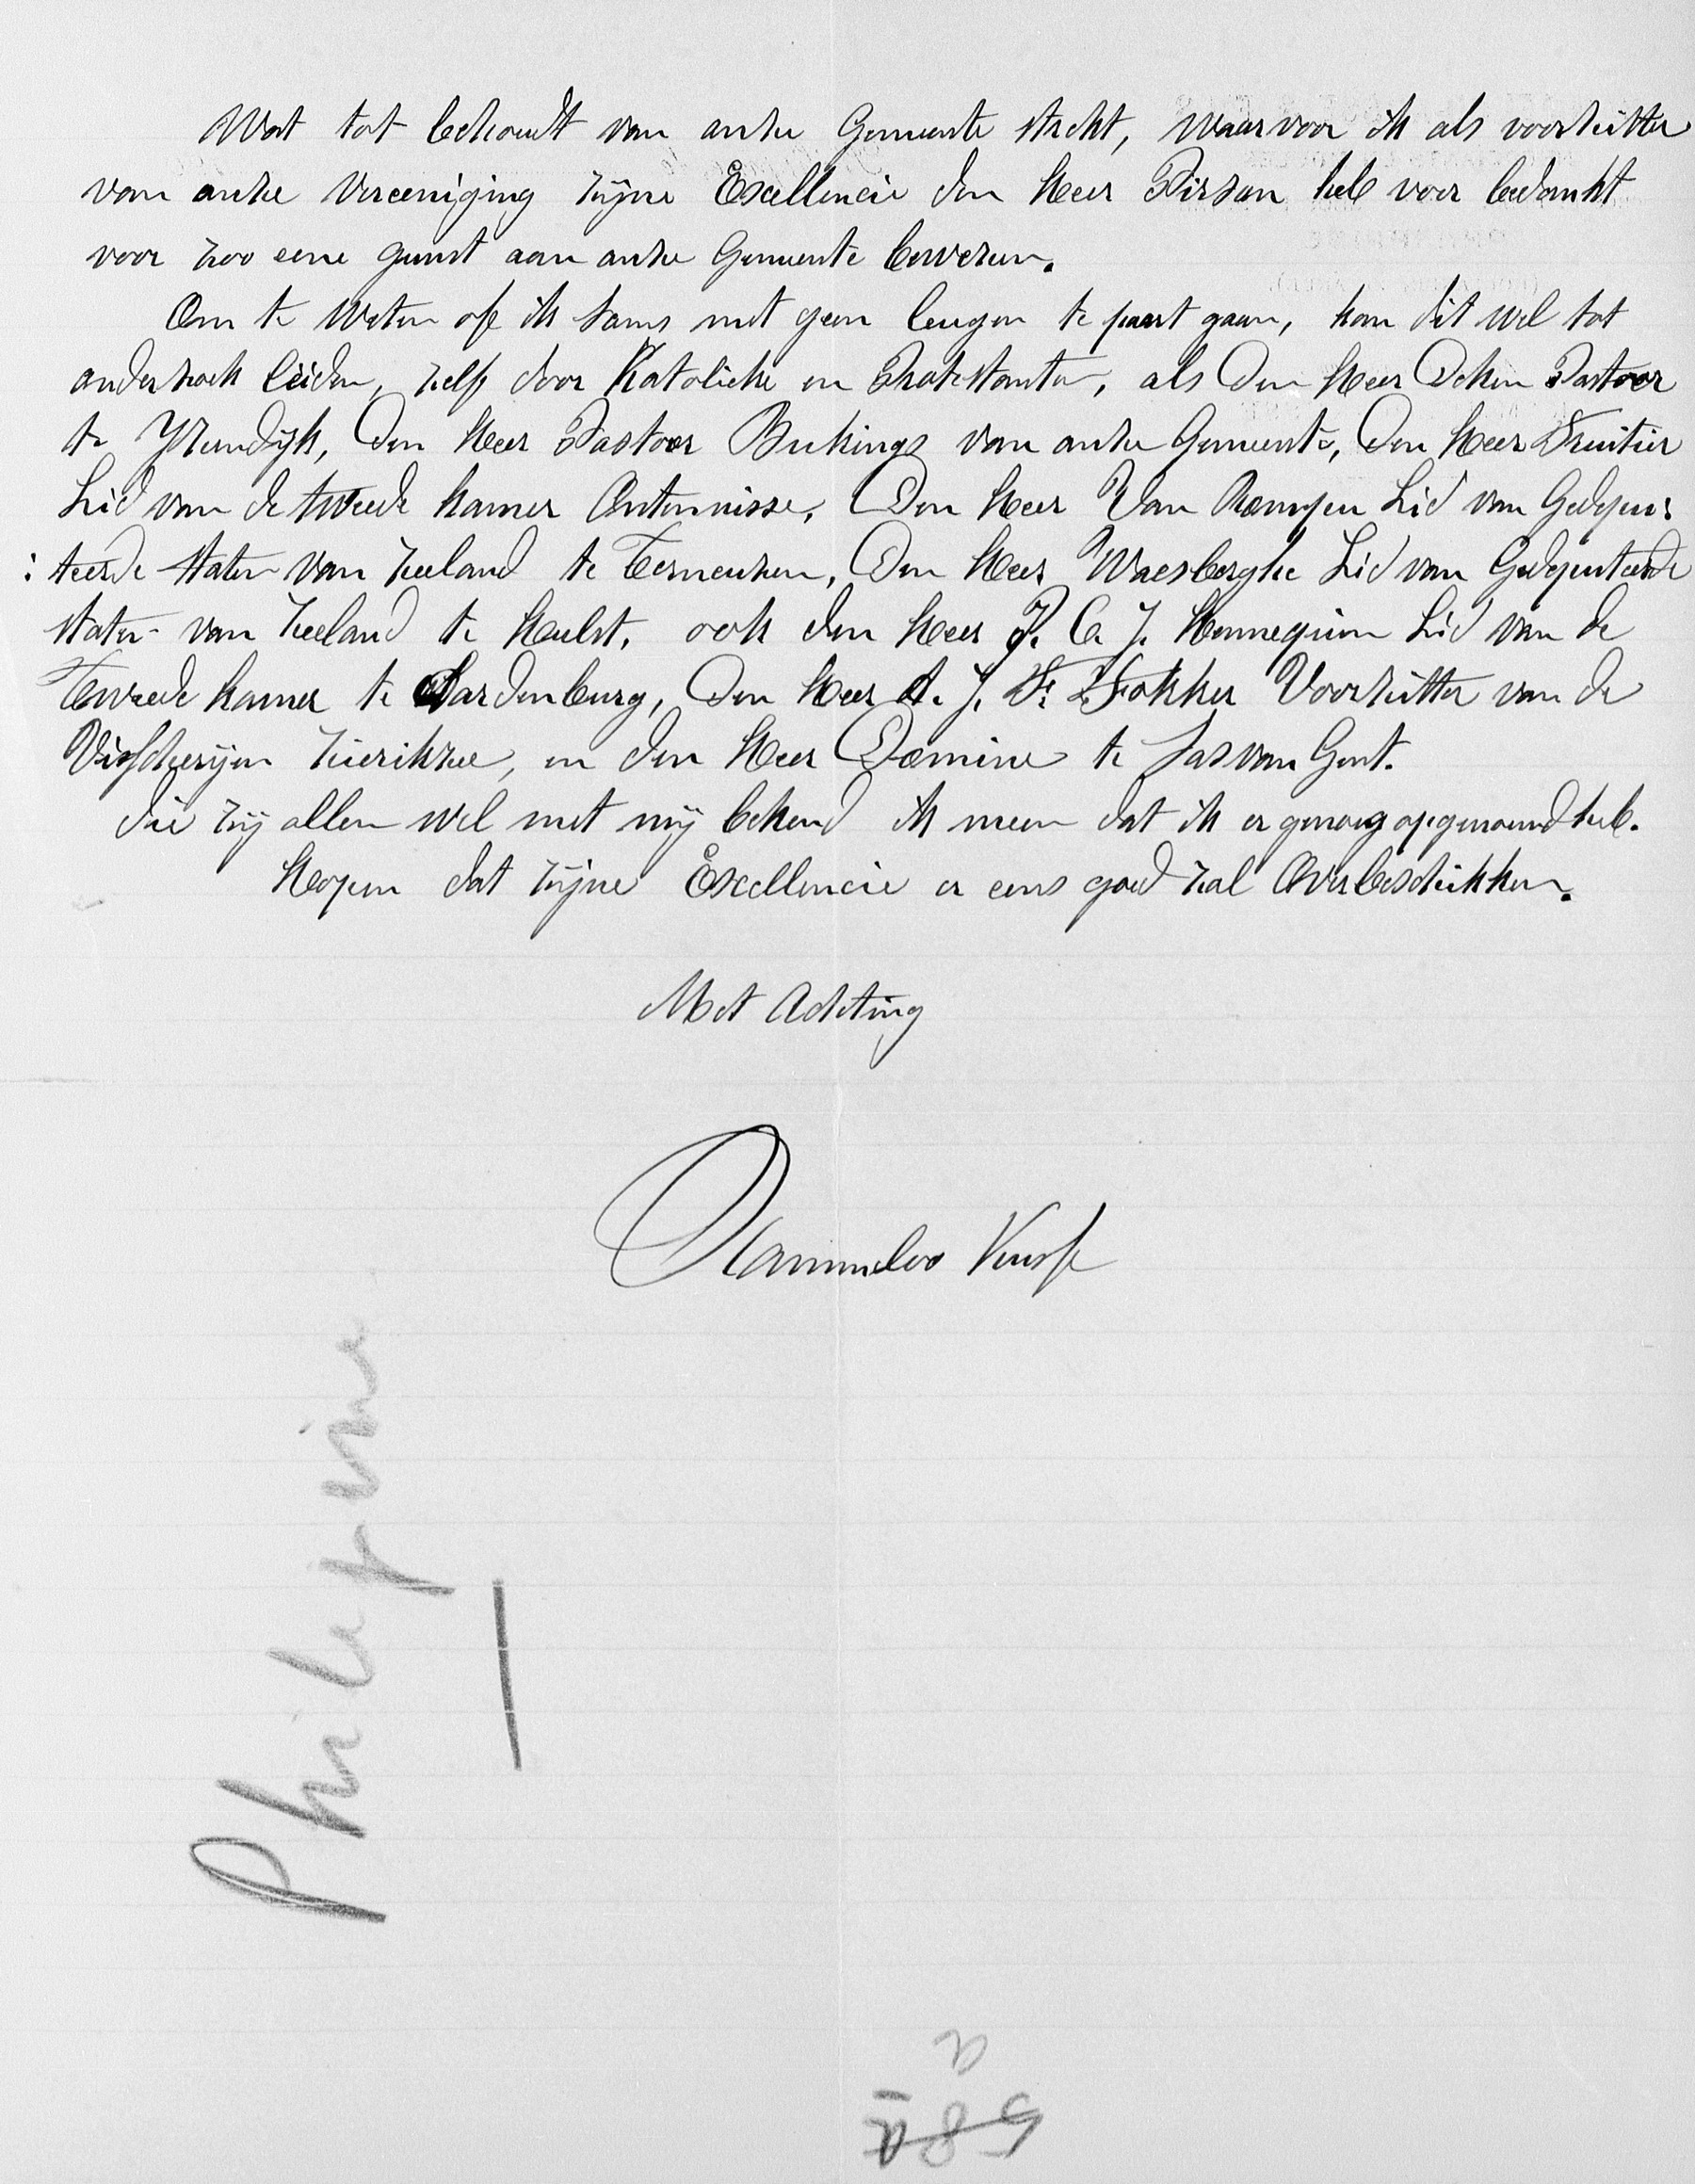 Wat tot behoudt van onze Gemeente strekt, waarvoor ik als voorzitter
van onze Vereeniging zijne Excellencie den Heer Pirson heb voor bedankt
voor zoo eene gunst aan onze Gemeente bewezen.
Om te weten of ik soms met geen leugen te paart gaan, kan dit wel tot
onderzoek leiden, zelf door Katolieke en Protestanten, als Den Heer Deken Pastoor
te Yzendijk, Den Heer Pastoor Bukings van onze Gemeente, Den Heer Fruitier
Lid van de tweede kamer Ontennisse, Den Heer Van Rompu Lid van Gedepu:
:teerde staten van Zeeland te Terneuzen, Den Heer Waesberghe Lid van Gedeputeerde
staten van Zeeland te Hulst, ook den Heer P. C. J. Hennequin Lid van de
Tweede kamer te Aardenburg, Den Heer A. J. F. Fokker Voorzitter van de
Visscherijen Zierikzee, en den Heer Domine te Sas van Gent.
die zij allen wel met mij bekend ik meen dat ik er genoeg opgenoemd heb.
Hopen dat zijne Excellencie er eens goed zal Overbeschikken.
Met Achting
Philipine
a
58a